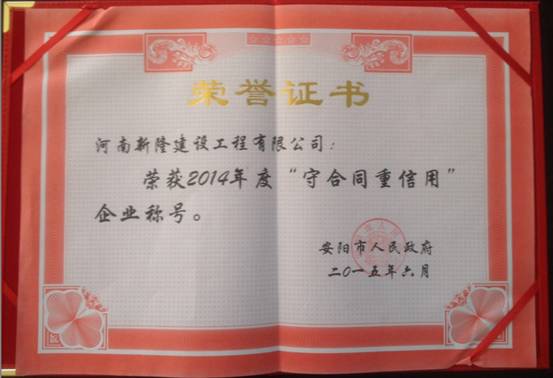 荣誉证书
河南新隆建设工程有限公司：
荣获2014年度“守合同重信用”
企业称号。
安阳市人民政府
二〇一五年六月